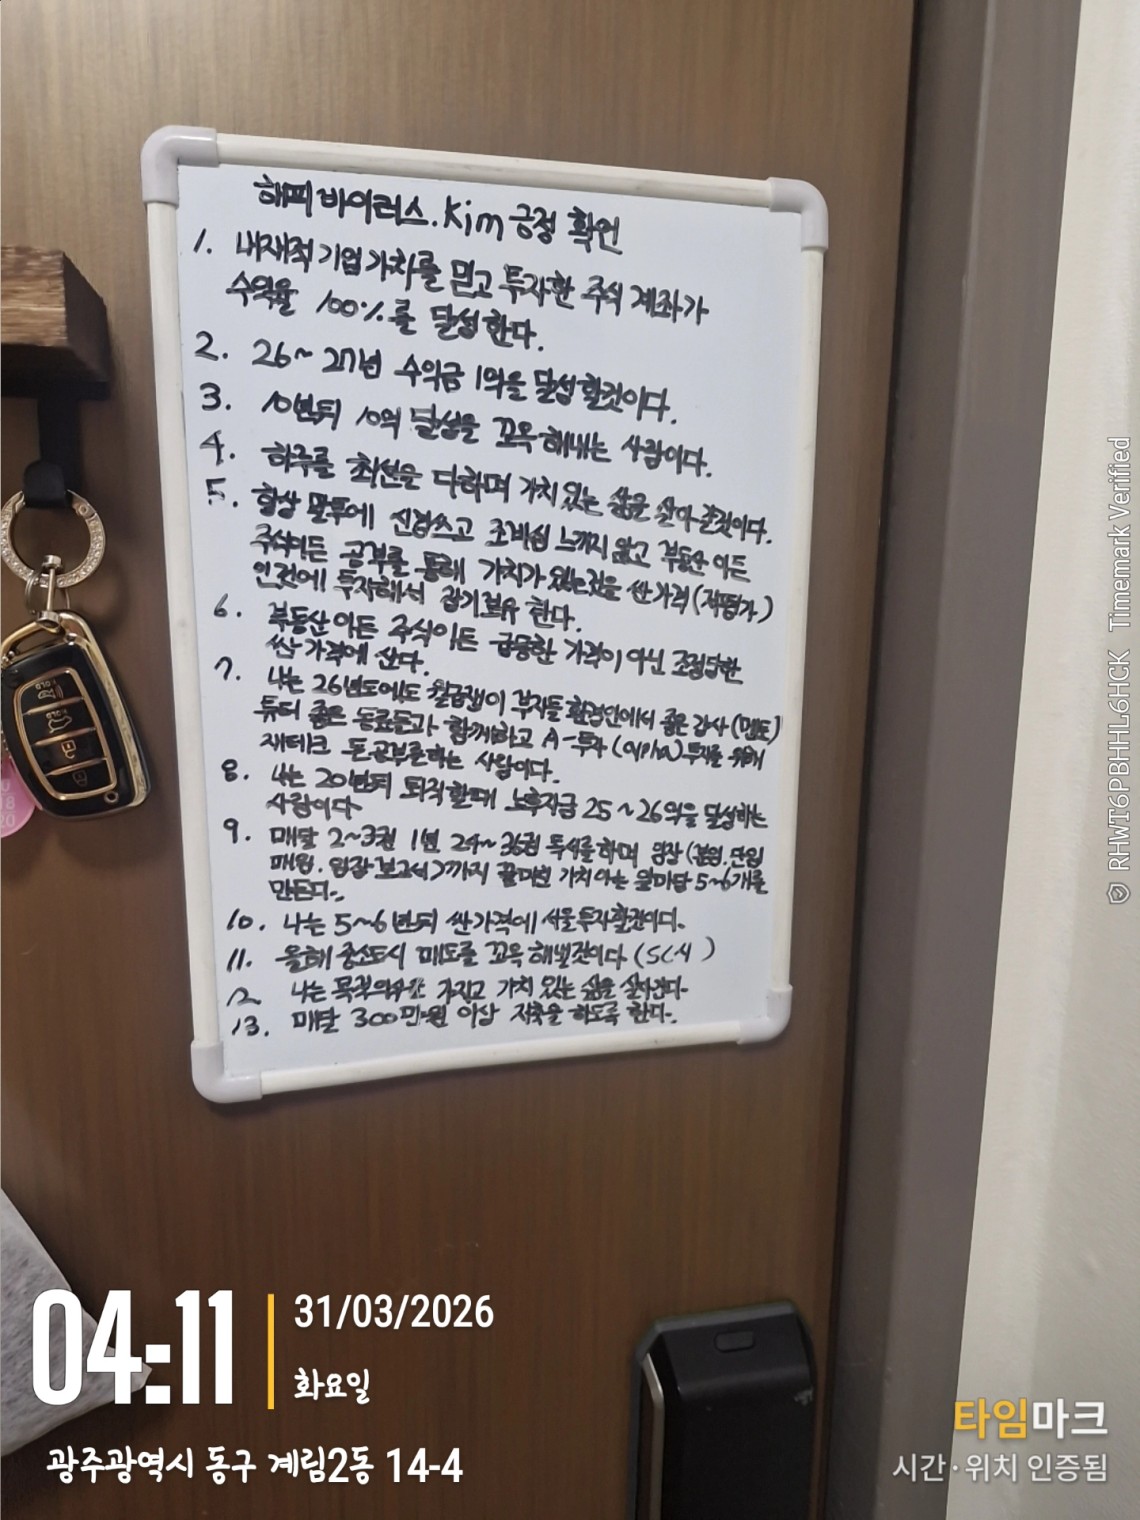 해피바이러스.Kim 긍정 확언
1. 내재적 기업가치를 믿고 투자한 주식 계좌가
수익율 100%를 달성한다.
2. 26~27년 수익금 1억을 달성할것이다.
3. 10년뒤 10억 달성을 꼬옥 해내는 사람이다.
4. 하루를 최선을 다하며 가치있는 삶을 살아갈것이다.
5. 항상 말투에 신경쓰고 조바심 느끼지 않고 부동산이든
주식이든 공부를 통해 가치가 있는것을 싼가격(저평가)
안전에 투자해서 장기보유 한다.
6. 부동산이든 주식이든 급등한 가격이 아닌 조정당한
싼 가격에 산다.
7. 나는 26년도에도 월급쟁이 부자들 환경안에서 좋은 강사(멘토)
튜터 좋은 동료들과 함께하고 A-투자(alpha)투자를 위해
재테크 돈공부를하는 사람이다.
8. 나는 20년뒤 퇴직할때 노후자금 25~26억을 달성하는
사람이다
9. 매달 2~3권 1년 24~36권 독서를하며 임장(분임.단임
매임. 임장보고서)까지 끝마친 가치아는 앞마당 5~6개를
만든다.
10. 나는 5~6년뒤 싼가격에 서울투자할것이다.
11. 올해 중소도시 매도를 꼬옥 해낼것이다 (SC시)
12 나는 목적의식 가지고 가치 있는 삶을 살아간다-
13. 매달 300만원 이상 저축을 하도록 한다.
04:11
31/03/2026
화요일
광주광역시 동구 계림2동 14-4
타임마크
시간·위치 인증됨
RHWT6PBHHL6HCK Timemark Verified